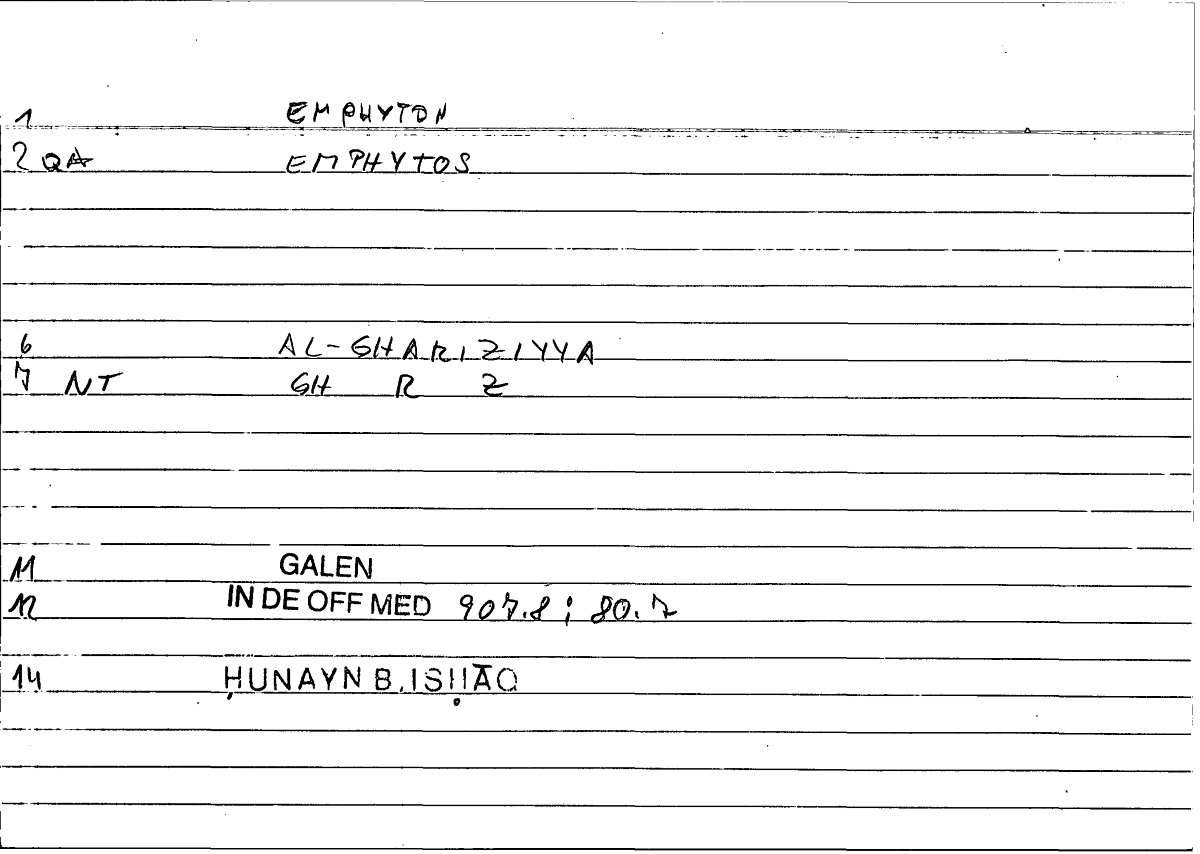 1 EMPHYTON
2 QA EMPHYTOS
6 AL-GHARIZIYYA
7 NT GH R Z
11 GALEN
12 IN DE OFF MED 907.8 ; 80.7
14 ḤUNAYN B. ISḤĀQ